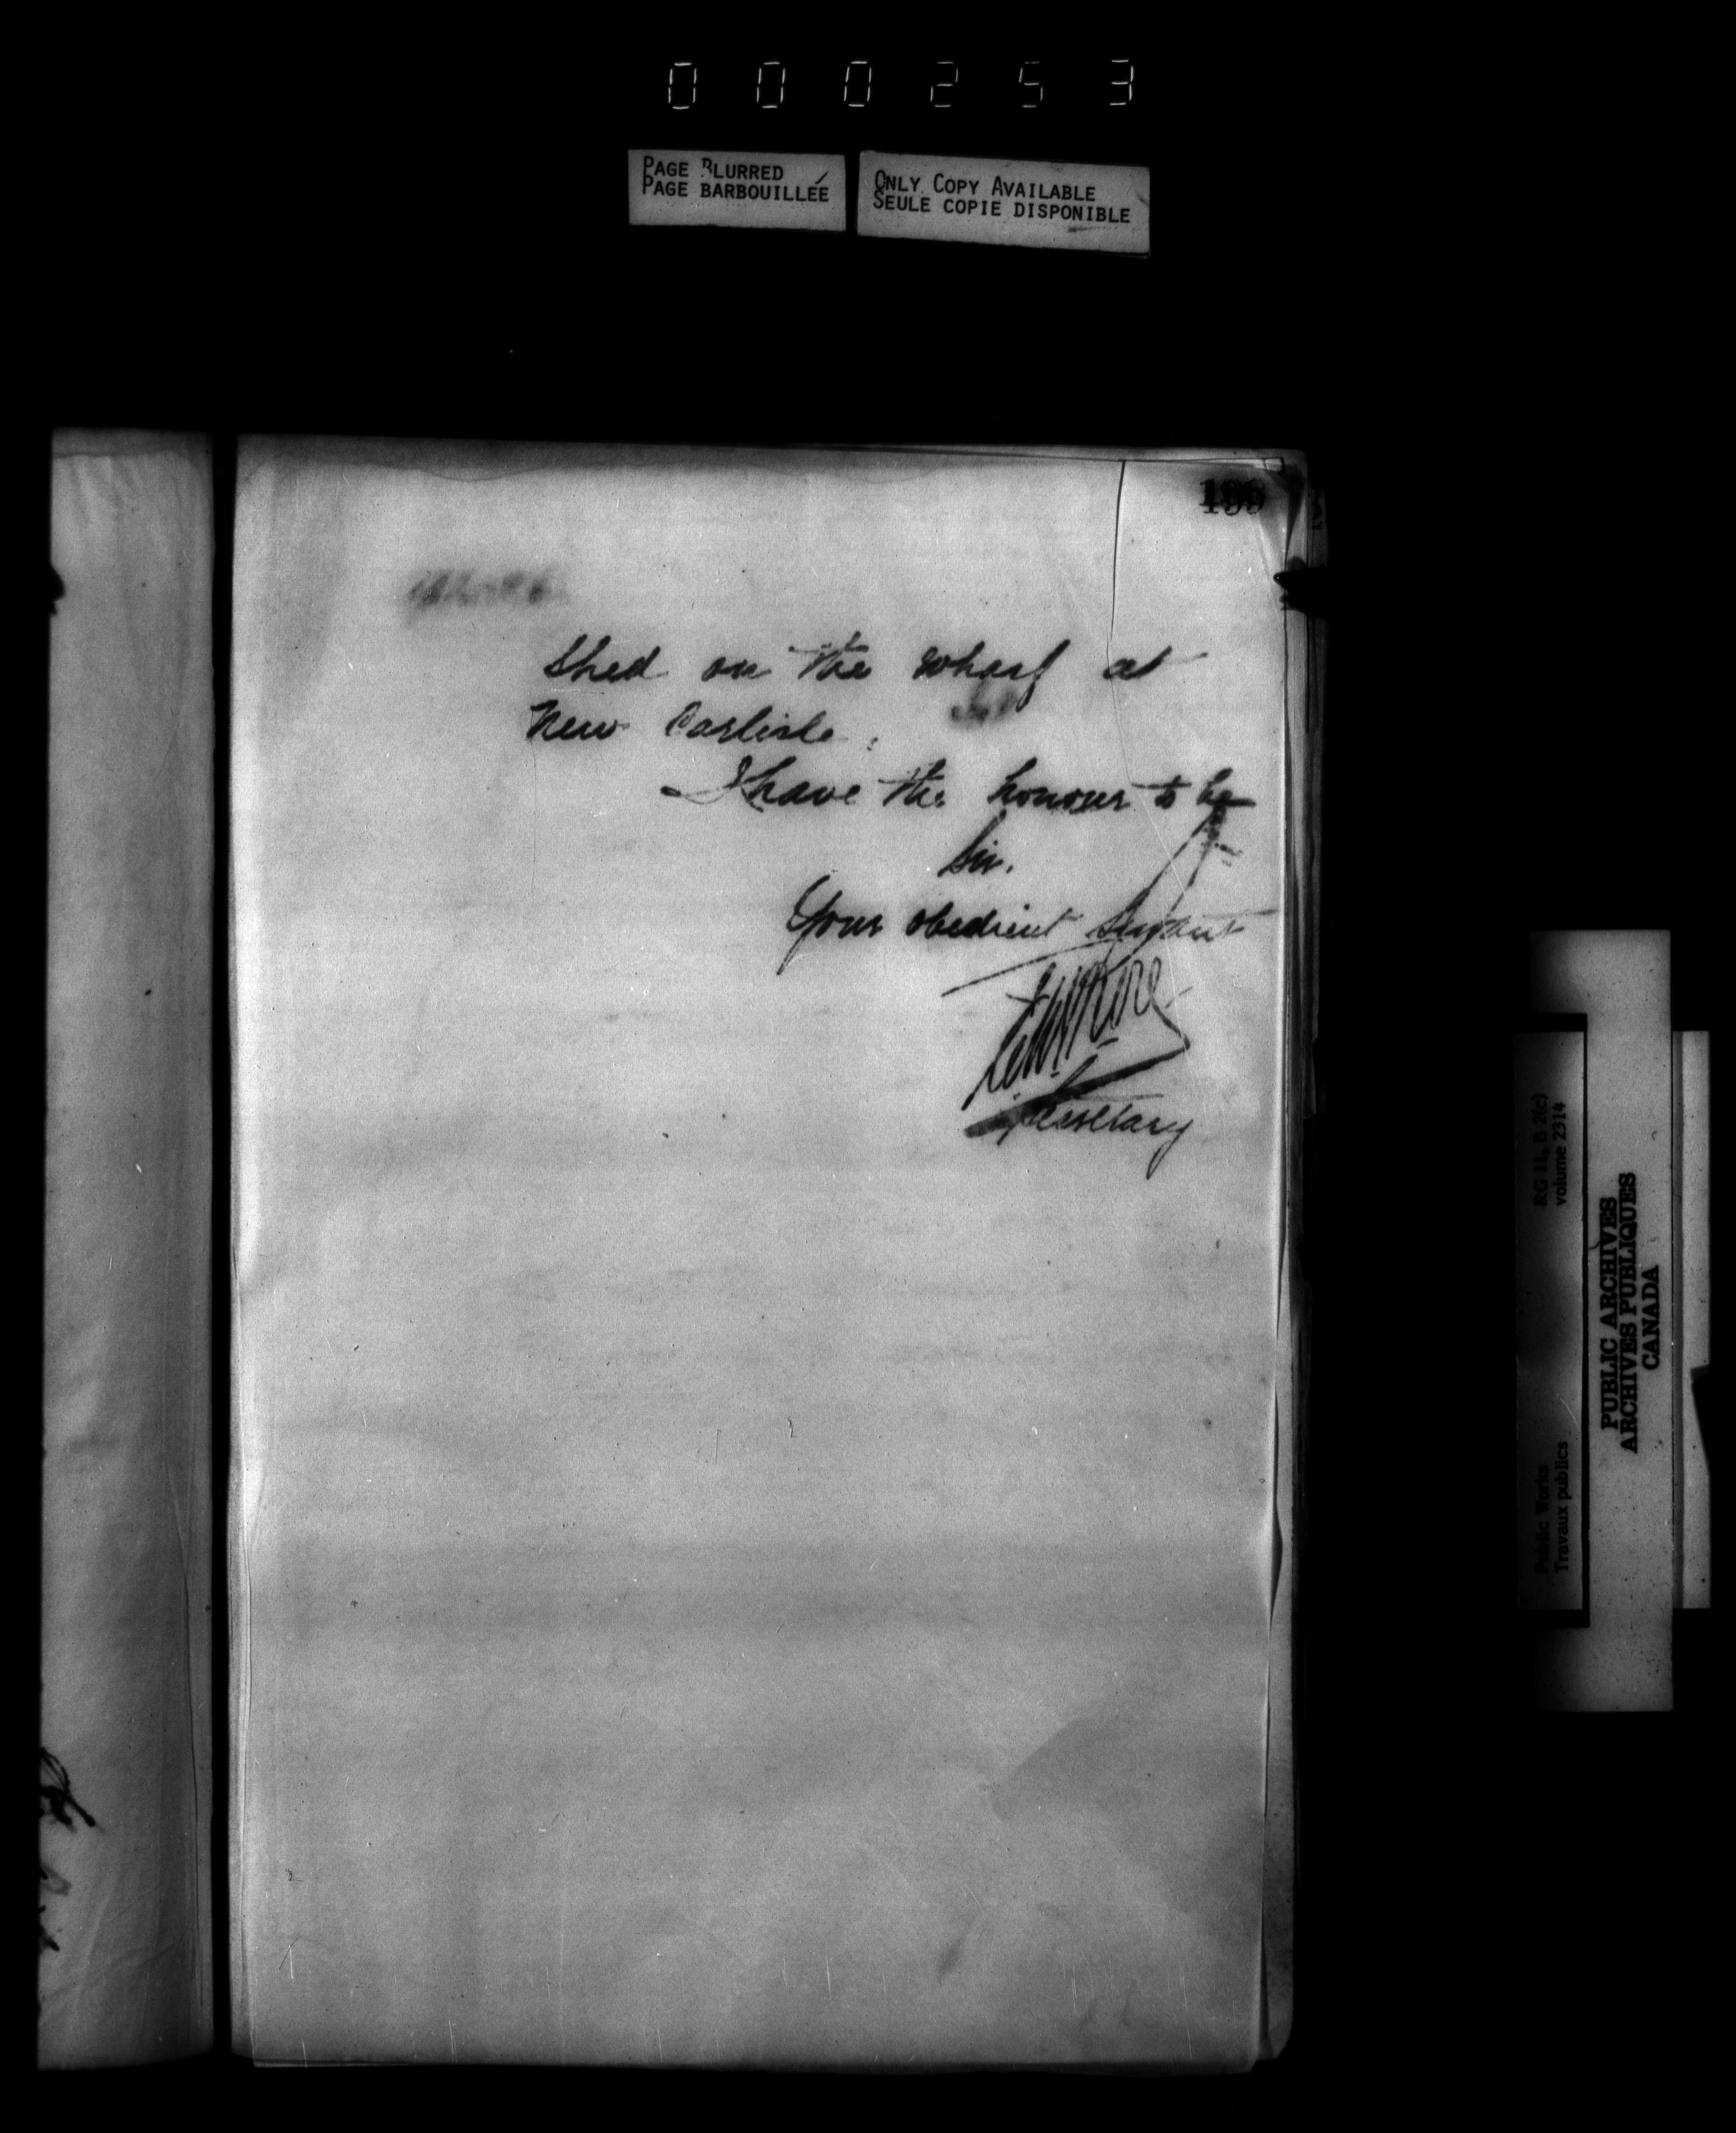 000253
PAGE BLURRED
PAGE BARBOUILLÉE
ONLY COPY AVAILABLE
SEULE COPIE DISPONIBLE
Shed on the wharf at
New Carlisle.
I have the honour to be
Sir.
Your obedient Servant
Secretary
RG 11, B 2(c)
volume 2314
Public Works
Travaux publics
PUBLIC ARCHIVES
ARCHIVES PUBLIQUES
CANADA